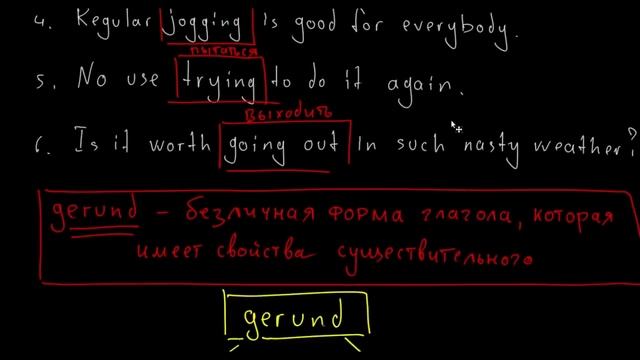 4. Regular jogging is good for everybody.
пытаться
5. No use trying to do it again.
выходить
6. Is it worth going out in such nasty weather?
gerund – безличная форма глагола, которая
имеет свойства существительного
gerund